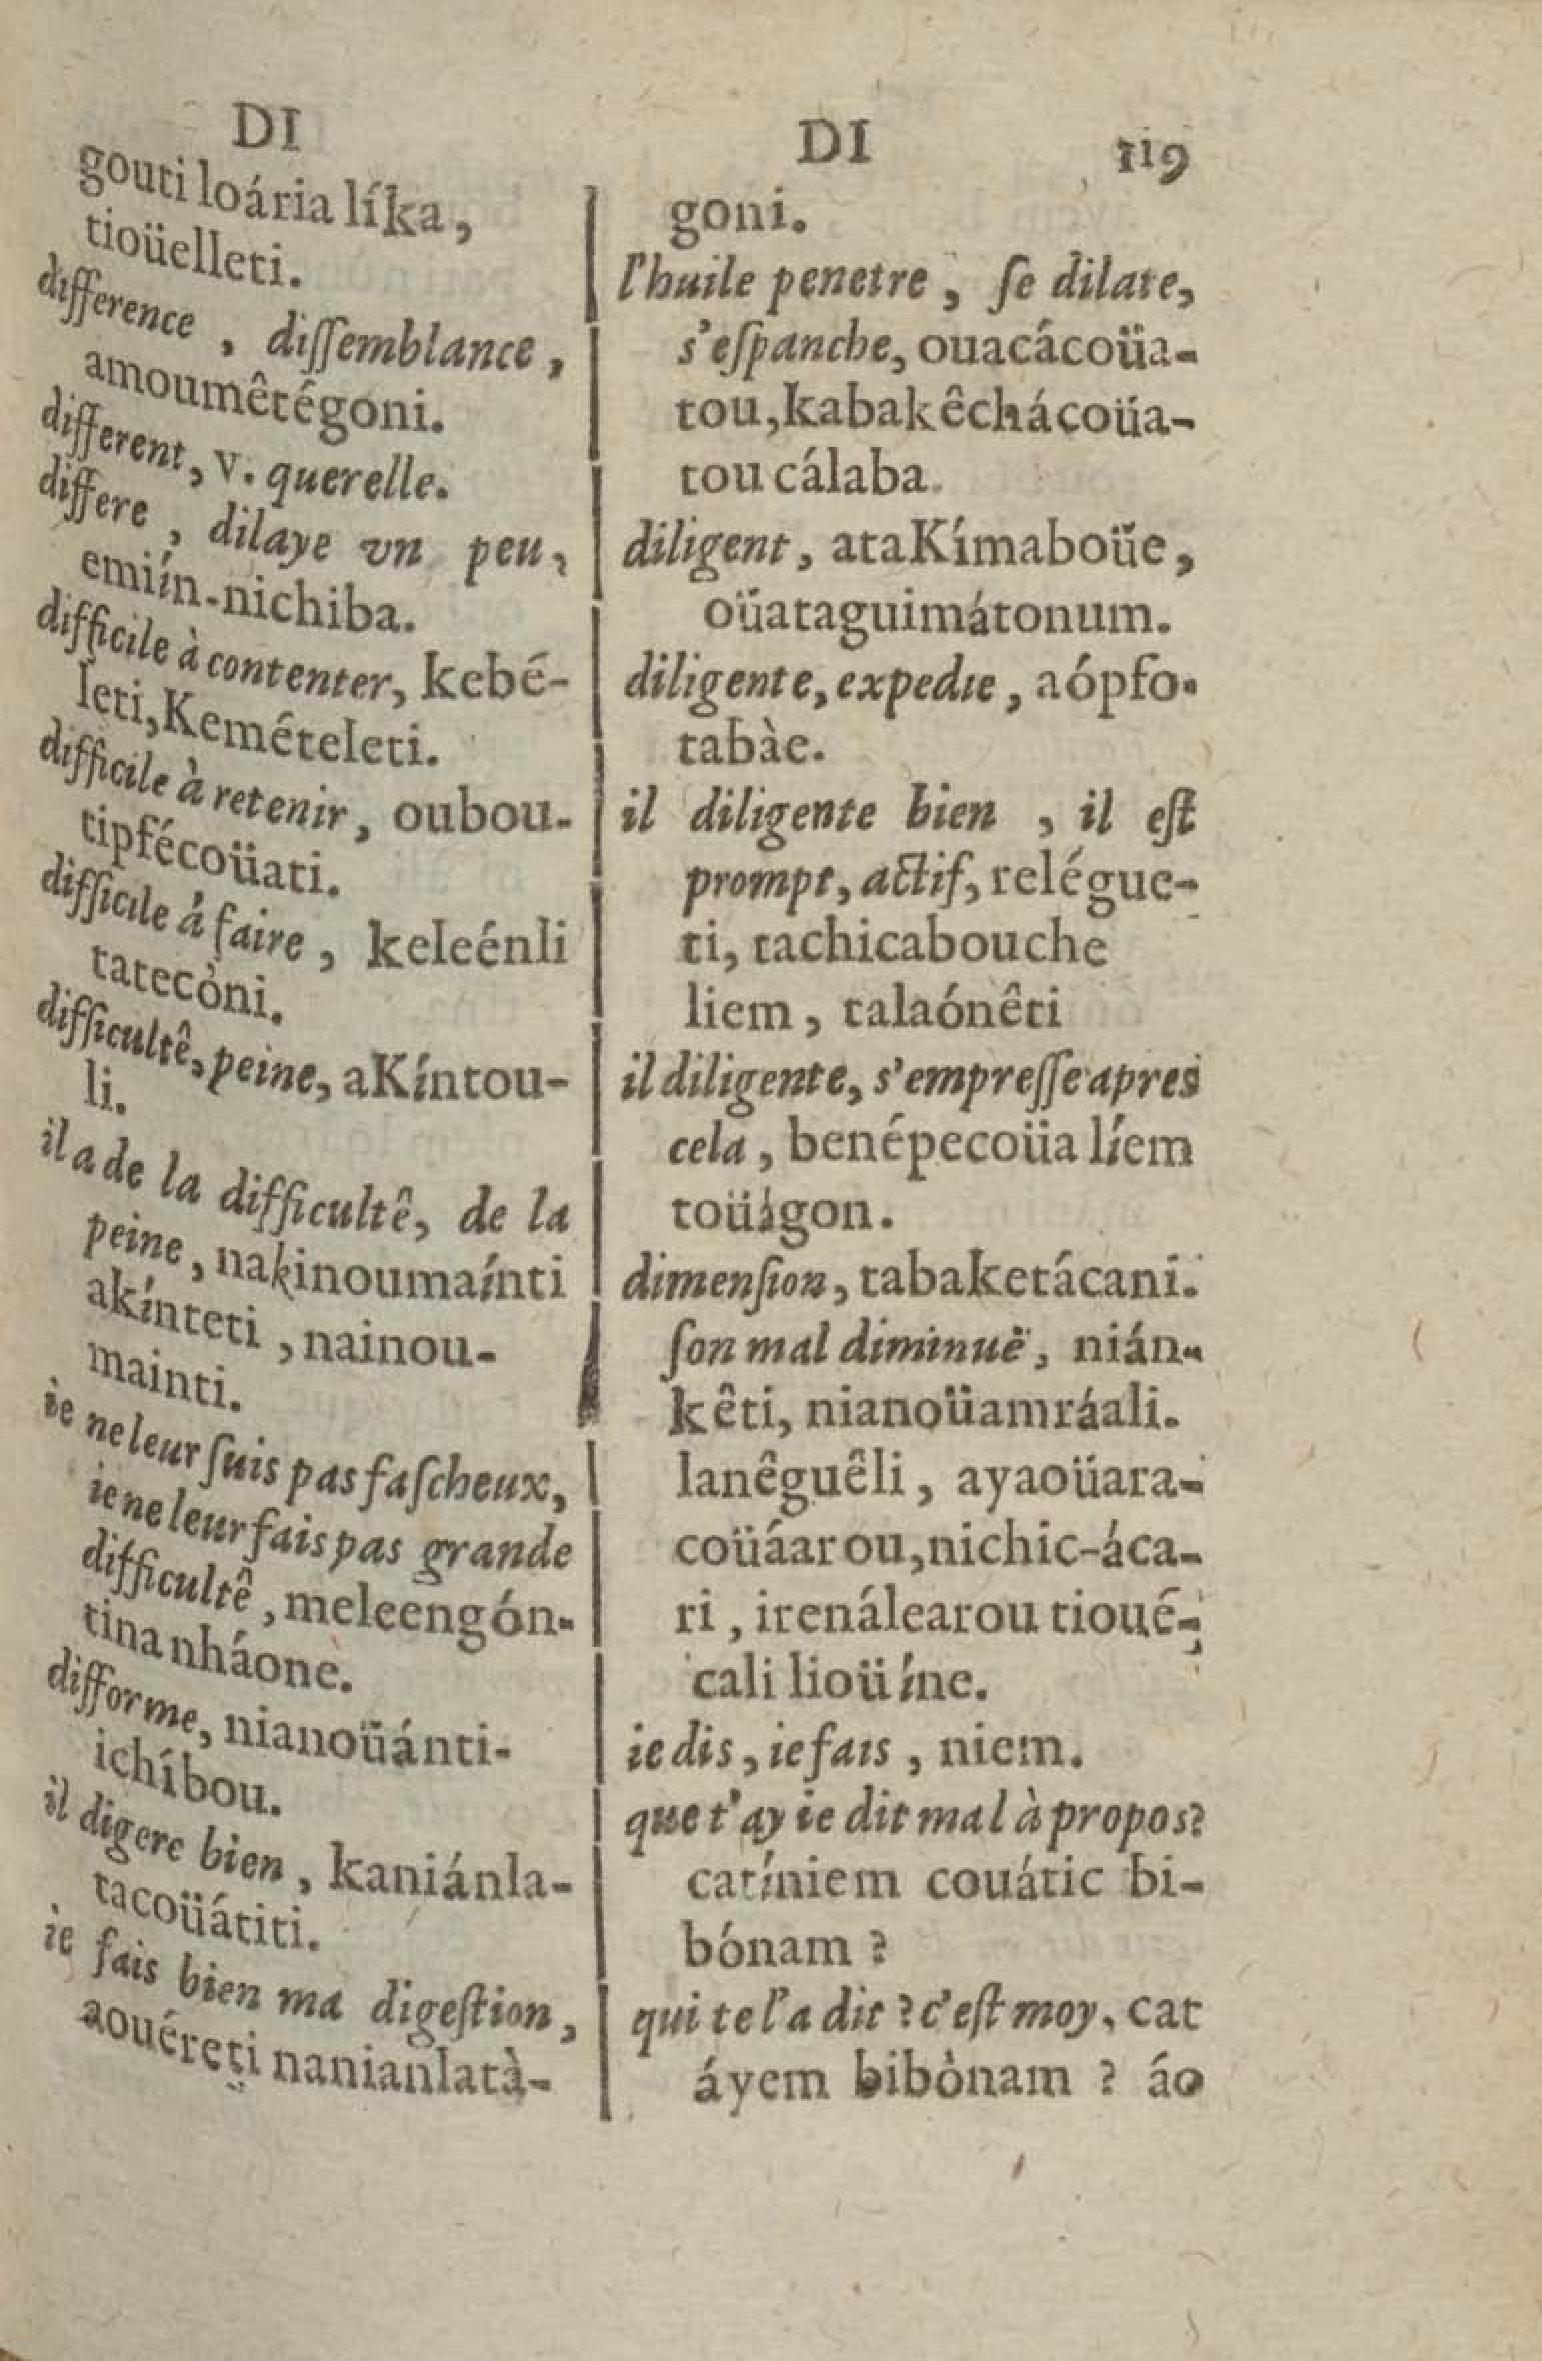 DI
gouti loária líka,
tioüelleti.
difference, diſſemblance,
amoumêtégoni.
different, v. querelle.
differe, dilaye vn peu,
emiín-nichiba.
difficile à contenter, kebé-
leti, Kemételeti.
difficile à retenir, oubou-
tipfécoüati.
difficile á faire, keleénli
tatecòni.
difficultê, peine, aKíntou-
li.
il a de la difficultê, de la
peine, nakinoumaínti
akínteti, nainou-
mainti.
ie ne leur ſuis pas faſcheux,
ie ne leur fais pas grande
difficultê, meleengón-
tina nháone.
difforme, nianoüánti-
ichíbou.
il digere bien, kaniánla-
tacoüátiti.
ie fais bien ma digeſtion,
aouéreti nanianlatà-
DI 119
goni.
l'huile penetre, ſe dilate,
s'eſpanche, ouacácoüa-
tou, kabakêchácoüa-
tou cálaba.
diligent, ataKímaboüe,
oüataguimátonum.
diligente, expedie, aópfo-
tabàe.
il diligente bien, il eſt
prompt, actif, relégue-
ti, tachicabouche
liem, talaónêti
il diligente, s'empreſſe apres
cela, benépecoüa líem
toüágon.
dimenſion, tabaketácani.
ſon mal diminuë, nián-
kêti, nianoüamráali.
lanêguêli, ayaoüara-
coüáarou, nichic-áca-
ri, irenálearou tioué-
cali lioüíne.
ie dis, ie fais, niem.
que t'ay ie dit mal à propos?
catíniem couátic bi-
bónam?
qui te l'a dit? c'eſt moy, cat
áyem bibònam? áo